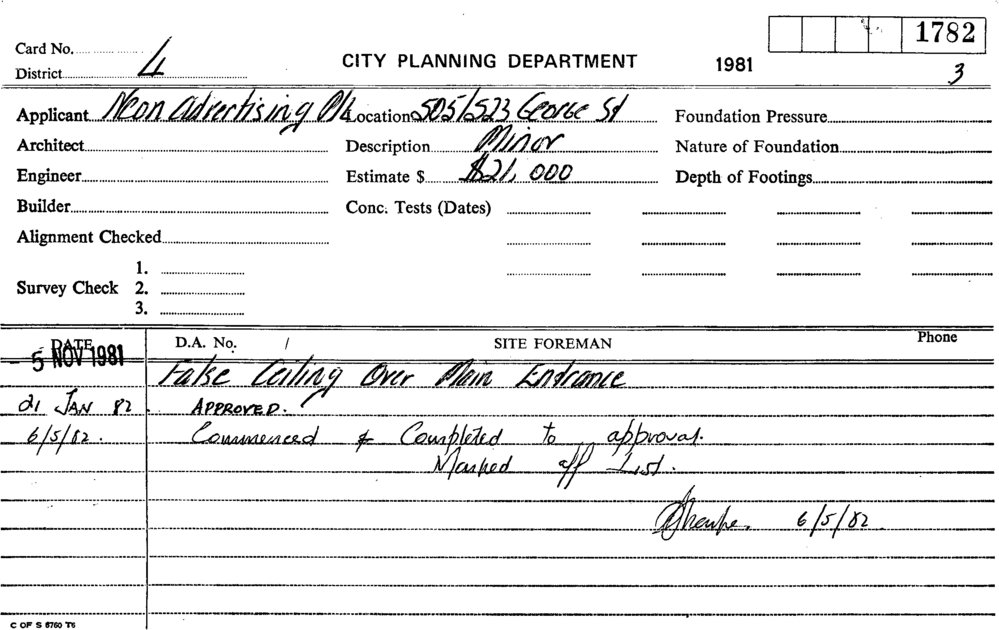 1782
Card No. 4
District
CITY PLANNING DEPARTMENT 1981 3
Applicant Neon Advertising P/L Location 505/523 George St Foundation Pressure
Architect Description Minor Nature of Foundation
Engineer Estimate $ $21,000 Depth of Footings
Builder Conc. Tests (Dates)
Alignment Checked
1.
Survey Check 2.
3.
DATE D.A. No. / SITE FOREMAN Phone
- 5 NOV 1981
False Ceiling Over Main Entrance
21 JAN 82 APPROVED.
6/5/82. Commenced & Completed to approval.
Marked off List.
6/5/82
C OF S 6760 T6